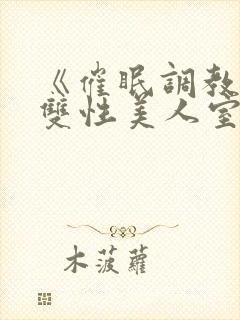 《催眠調教
雙性美人室
木菠蘿